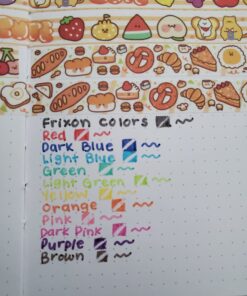 Frixon Colors
Red
Dark Blue
Light Blue
Green
Light Green
Yellow
Orange
Pink
Dark Pink
Purple
Brown